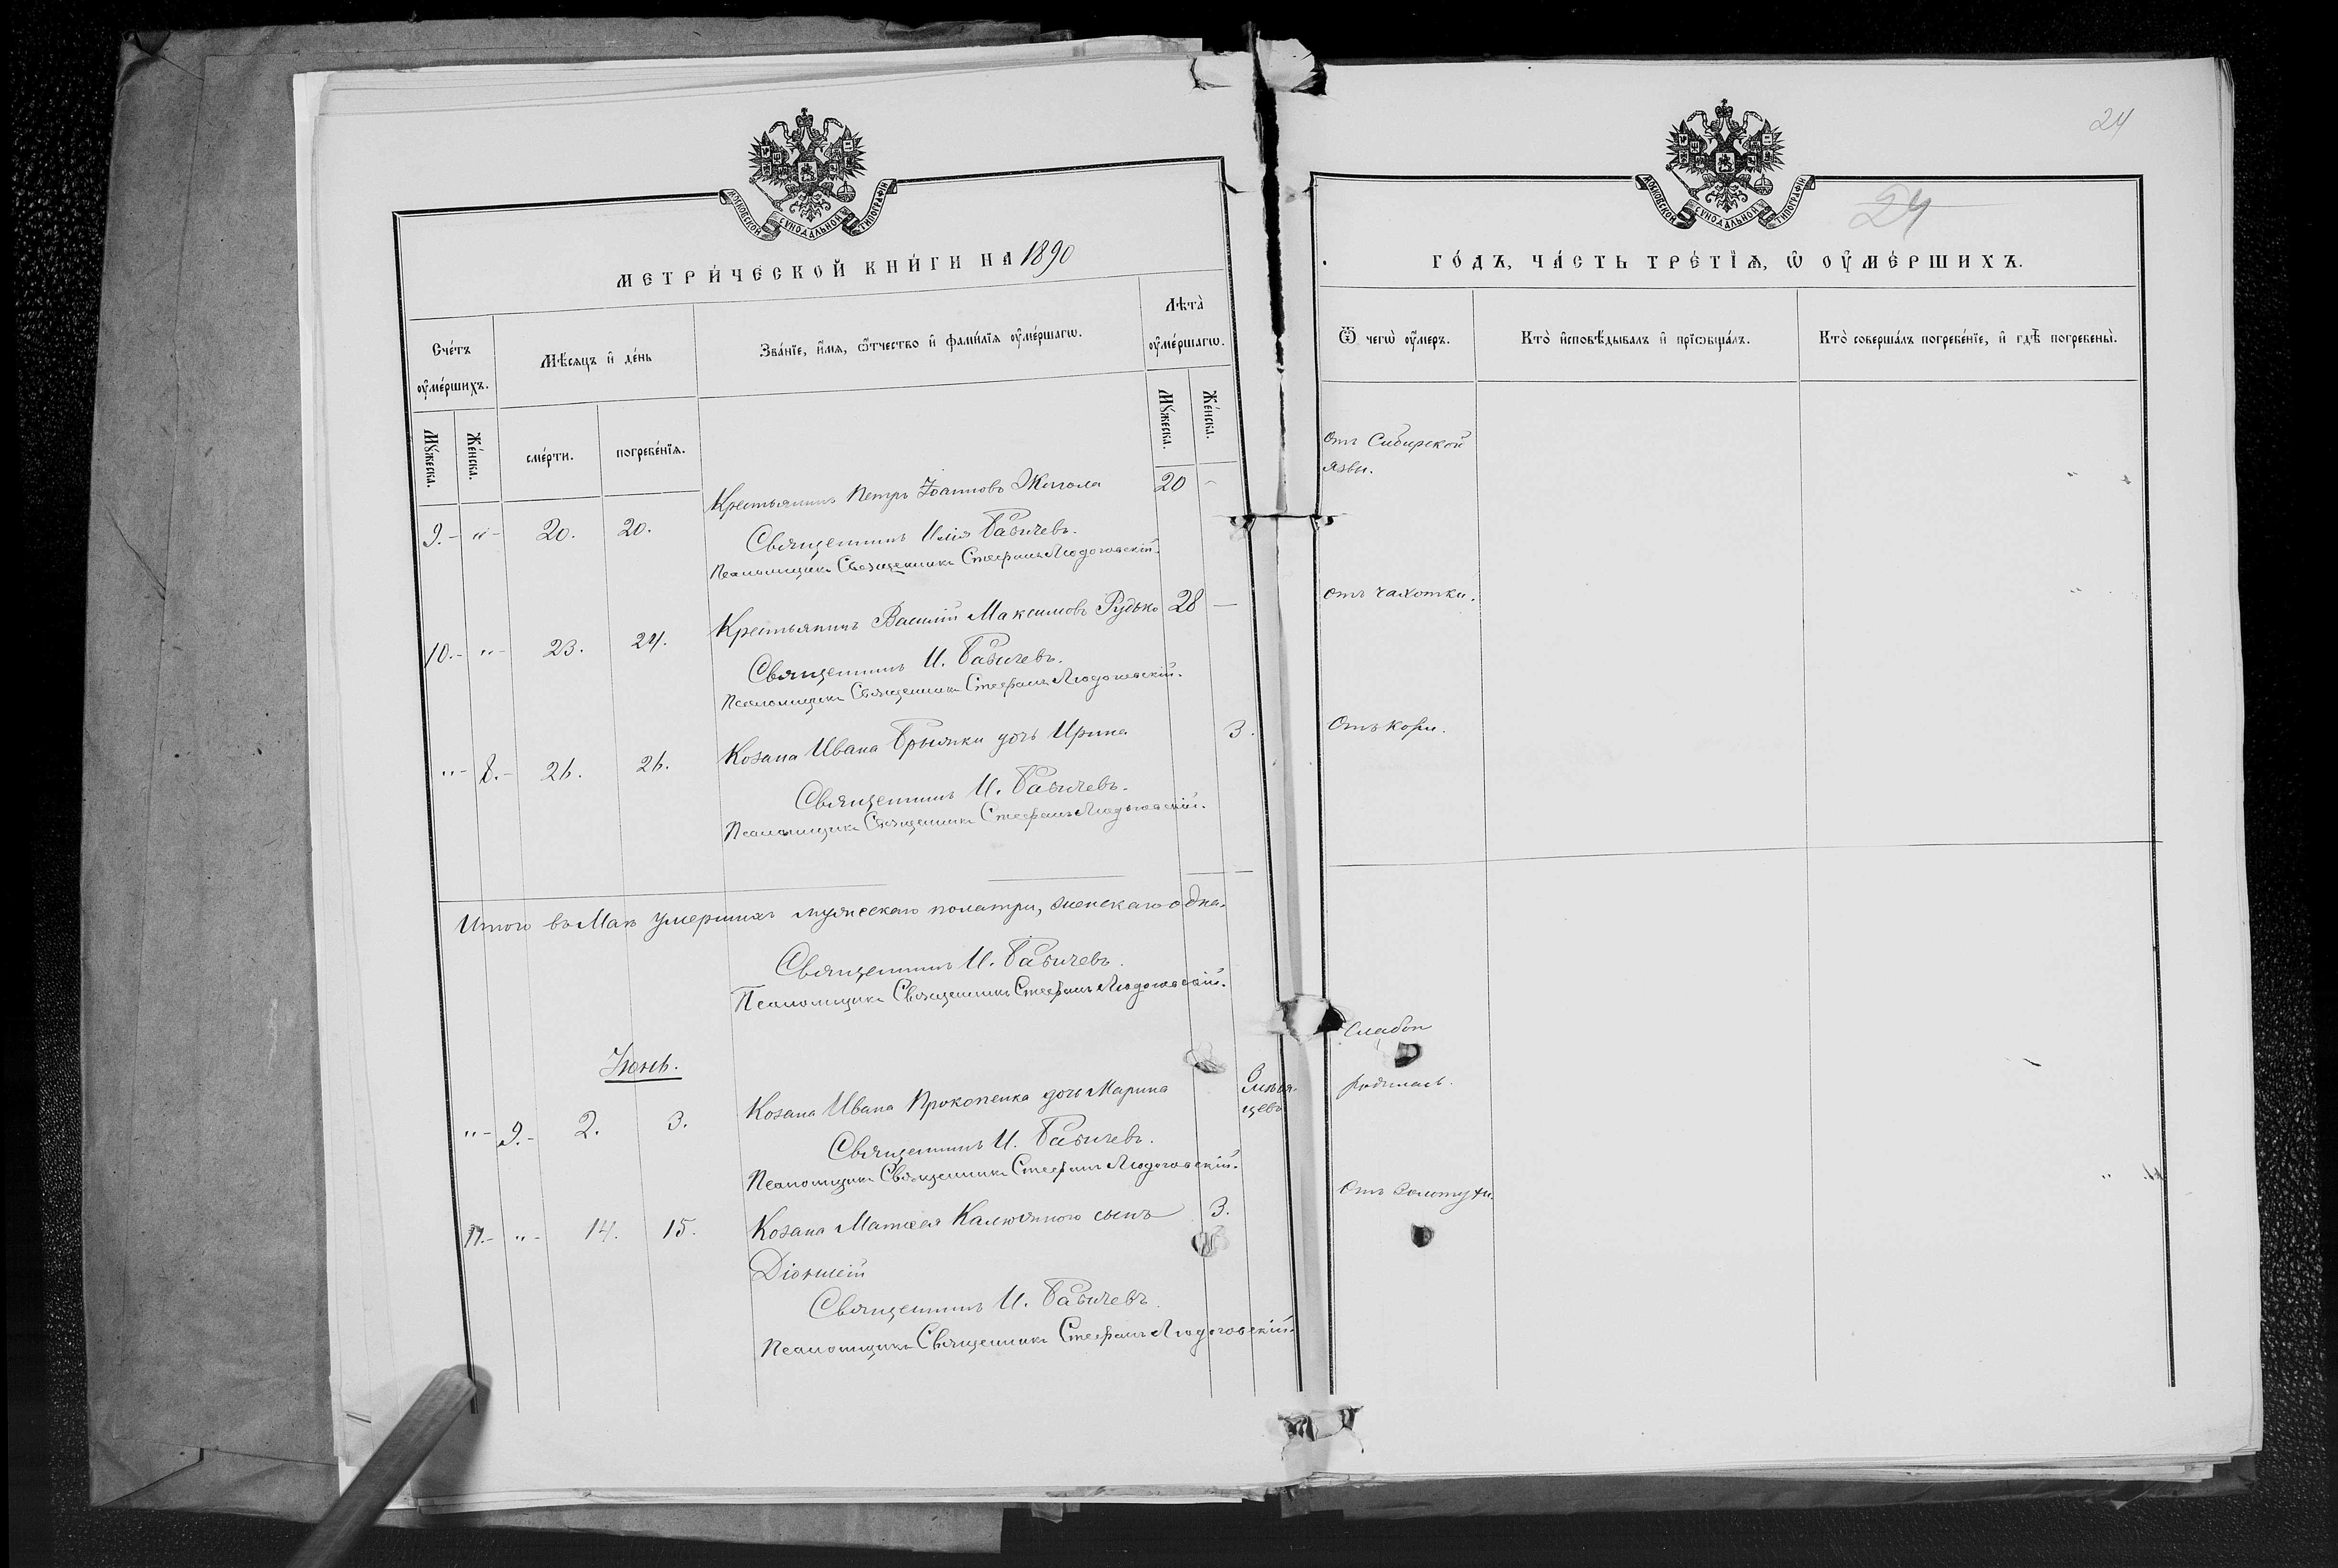 24
24
МОСКОВСКОЙ СѴНОДАЛЬНОЙ ТИПОГРАФІИ
МЕТРИ́ЧЕСКОЙ КНИ́ГИ НА 1890
Сче́тъ ᲂу҆ме́ршихъ.
Мѣ́сяцъ и҆ де́нь
Зва́нїе, и҆́мя, ѻ҆́тчество и҆ фами́лїя ᲂу҆ме́ршагѡ.
Лѣта̀ ᲂу҆ме́ршагѡ.
Мꙋ́жеска.
Же́нска.
сме́рти.
погребе́нїя.
Мꙋ́жеска.
Же́нска.
9.- "- 20. 20. Крестьянинъ Петръ Іоанновъ 20 -
Священникъ Илія Бабичевъ.
Псаломщикъ Священникъ Стефанъ Людоговскій.
10.- "- 23. 24. Крестьянинъ Василій Максимовъ Рудько 28 —
Священникъ И. Бабичевъ.
Псаломщикъ Священникъ Стефанъ Людоговскій.
"- 8.- 26. 26. Козака Ивана дочь Ирина 3.
Священникъ И. Бабичевъ.
Псаломщикъ Священникъ Стефанъ Людоговскій.
Итого въ Маѣ умершихъ мужескаго пола три, женскаго одна.
Священникъ И. Бабичевъ.
Псаломщикъ Священникъ Стефанъ Людоговскій.
Іюнь.
"- 9.- 2. 3. Козака Ивана Прокопенка дочь Марина
Священникъ И. Бабичевъ.
Псаломщикъ Священникъ Стефанъ Людоговскій.
11.- "- 14. 15. Козака Матѳея Калюжного сынъ 3.
Діонисій
Священникъ И. Бабичевъ.
Псаломщикъ Священникъ Стефанъ Людоговскій.
МОСКОВСКОЙ СѴНОДАЛЬНОЙ ТИПОГРАФІИ
ГО́ДЪ, ЧА́СТЬ ТРЕ́ТЇѦ, Ѡ҆ ОУ҆МЕ́РШИХЪ.
Ѿ чегѡ̀ ᲂу҆́меръ.
Кто̀ и҆сповѣ́дывалъ и҆ прїѡбща́лъ.
Кто̀ соверша́лъ погребе́нїе, и҆ гдѣ̀ погребены̀.
Отъ Сибирской
язвы.
Отъ чахотки.
Отъ кори.
Слабою
родилась.
Отъ золотухи.